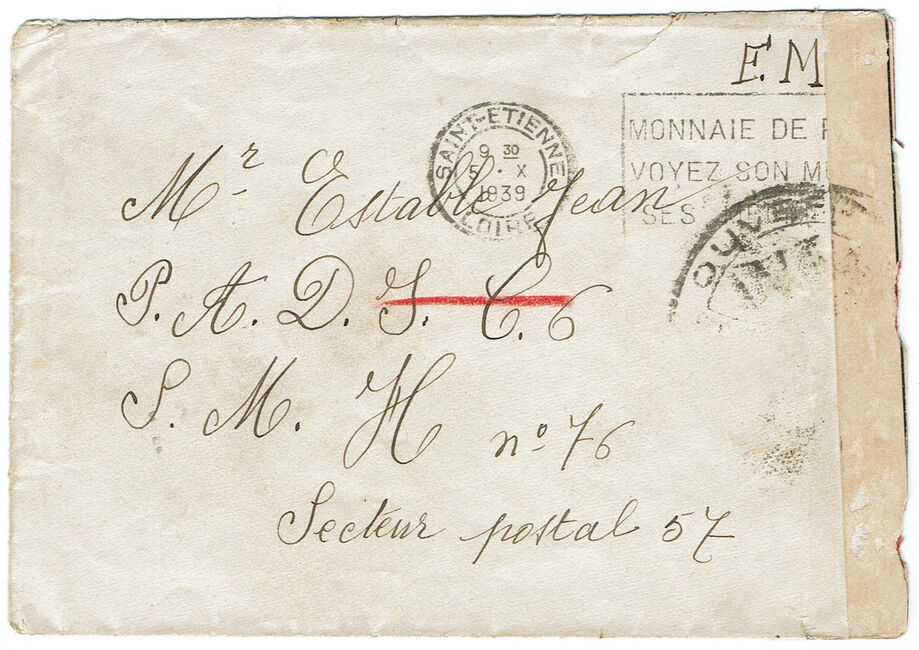 F. M
SAINT-ETIENNE
9 30
5 · X
1939
LOIRE
MONNAIE DE P
VOYEZ SON MU
SES
OUVE
Mr Estable Jean
P. A. D. S. C. 6
S. M. H nº 76
Secteur postal 57